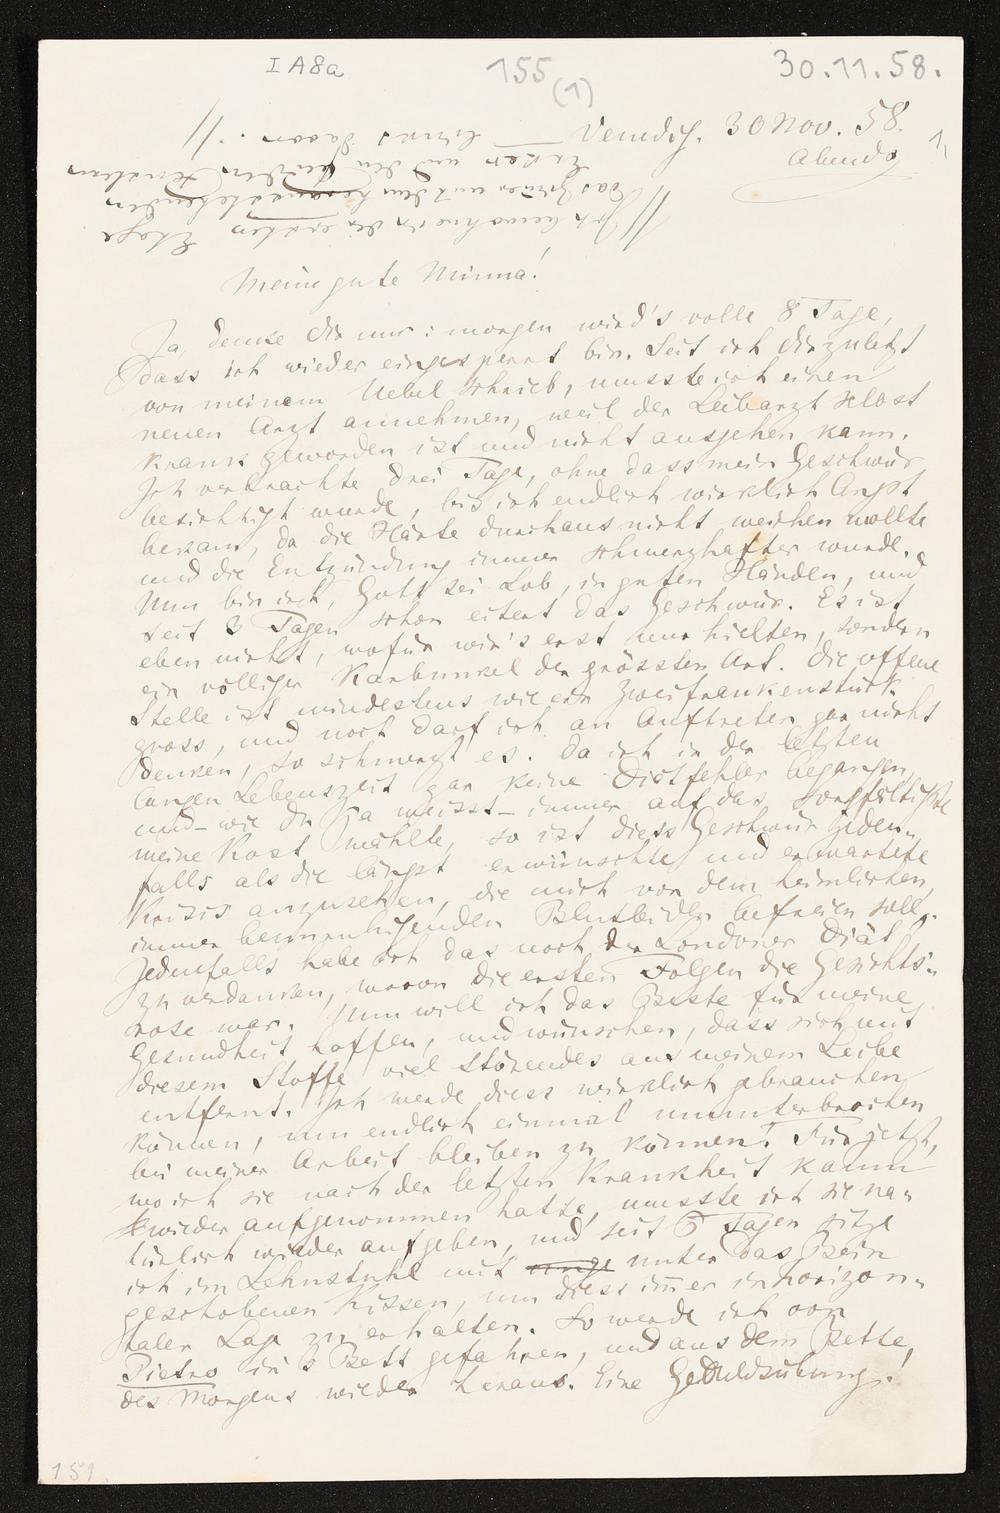 I A8a
155 (1)
30.11.58.
1,
Venedig. 30 Nov. 58.
Abends
// Ich bewohne in der ersten Etage
das Zimmer mit dem herausstehenden
Erker und den beiden Fenstern
links davon. //
Meine gute Minna!
Ja, denke Dir nur: morgen wird's volle 8 Tage,
dass ich wieder eingesperrt bin. Seit ich Dir zuletzt
von meinem Uebel schrieb, musste ich einen
neuen Arzt annehmen, weil der Leibarzt selbst
krank geworden ist und nicht ausgehen kann.
Ich verbrachte drei Tage, ohne dass mein Geschwür
besichtigt wurde, bis ich endlich wirklich Angst
bekam, da die Härte durchaus nicht weichen wollte
und die Entzündung immer schmerzhafter wurde.
Nun bin ich, Gott sei Lob, in guten Händen, und
seit 3 Tagen schon eitert das Geschwür. Es ist
eben nicht, wofür wir's erst nur hielten, sondern
ein völliger Karbunkel der grössten Art. Die offene
Stelle ist mindestens wie ein Zweifrankenstück
gross, und noch darf ich an Auftreten gar nicht
denken, so schmerzt es. Da ich in der letzten
langen Lebenszeit gar keine Diätfehler begangen,
und – wie Du ja weisst – immer auf das Sorgfältigste
meine Kost wählte, so ist diess Geschwür jeden-
falls als die längst erwünschte und erwartete
Krisis anzusehen, die mich von dem heimlichen,
immer beunruhigenden Blutübel befreien soll.
Jedenfalls habe ich das noch der Londoner Diät
zu verdanken, wovon die ersten Folgen die Gesichts-
rose war. Nun will ich das Beste für meine
Gesundheit hoffen, und wünschen, dass sich mit
diesem Stoffe viel Störendes aus meinem Leibe
entfernt. Ich werde diess wirklich gebrauchen
können, um endlich einmal ununterbrochen
bei meiner Arbeit bleiben zu können. Für jetzt,
wo ich sie nach der letzten Krankheit kaum
wieder aufgenommen hatte, musste ich sie na-
türlich wieder aufgeben, und seit 6 Tagen sitze
ich im Lehnstuhl mit unter das Bein
geschobenen Kissen, um diess im̄er in horizon-
taler Lage zu erhalten. So werde ich von
Pietro in's Bett gefahren, und aus dem Bette,
des Morgens wieder heraus. Eine Geduldsübung!
151.